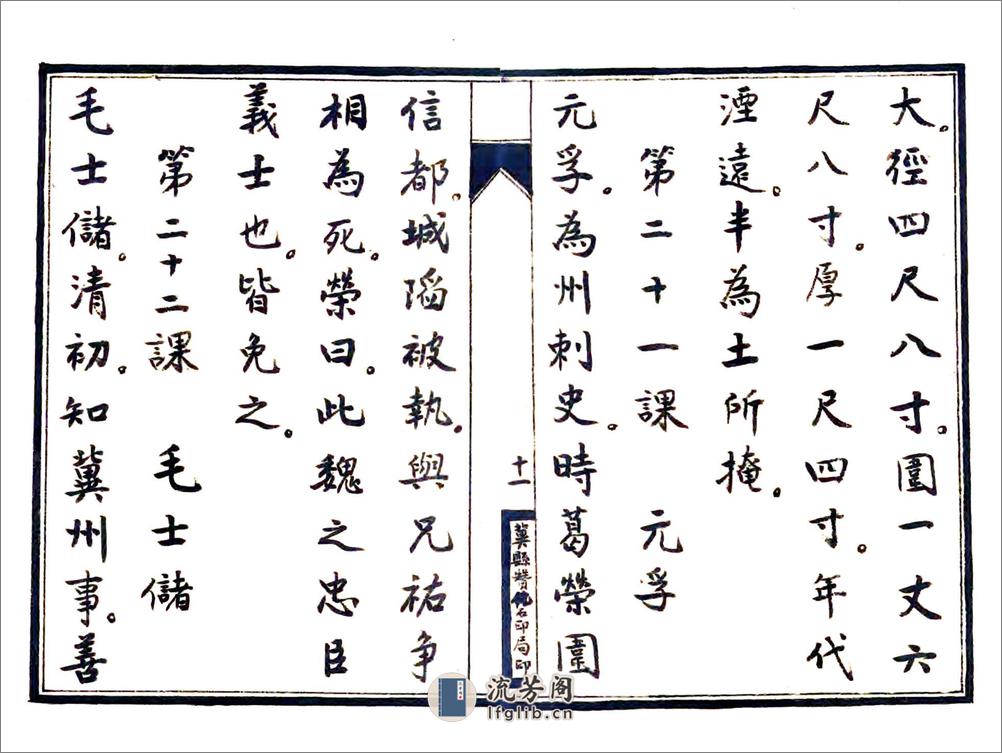 大。徑四尺八寸。圍一丈六
尺八寸。厚一尺四寸。年代
湮遠。半為土所掩。
第二十一課　元孚
元孚。為州刺史。時葛榮圍
十一
冀縣贊化石印局印
信都。城陷被執。與兄祐争
相為死。榮曰。此魏之忠臣
義士也。皆免之。
第二十二課　毛士儲
毛士儲。清初。知冀州事。善
流芳阁
lfglib.cn